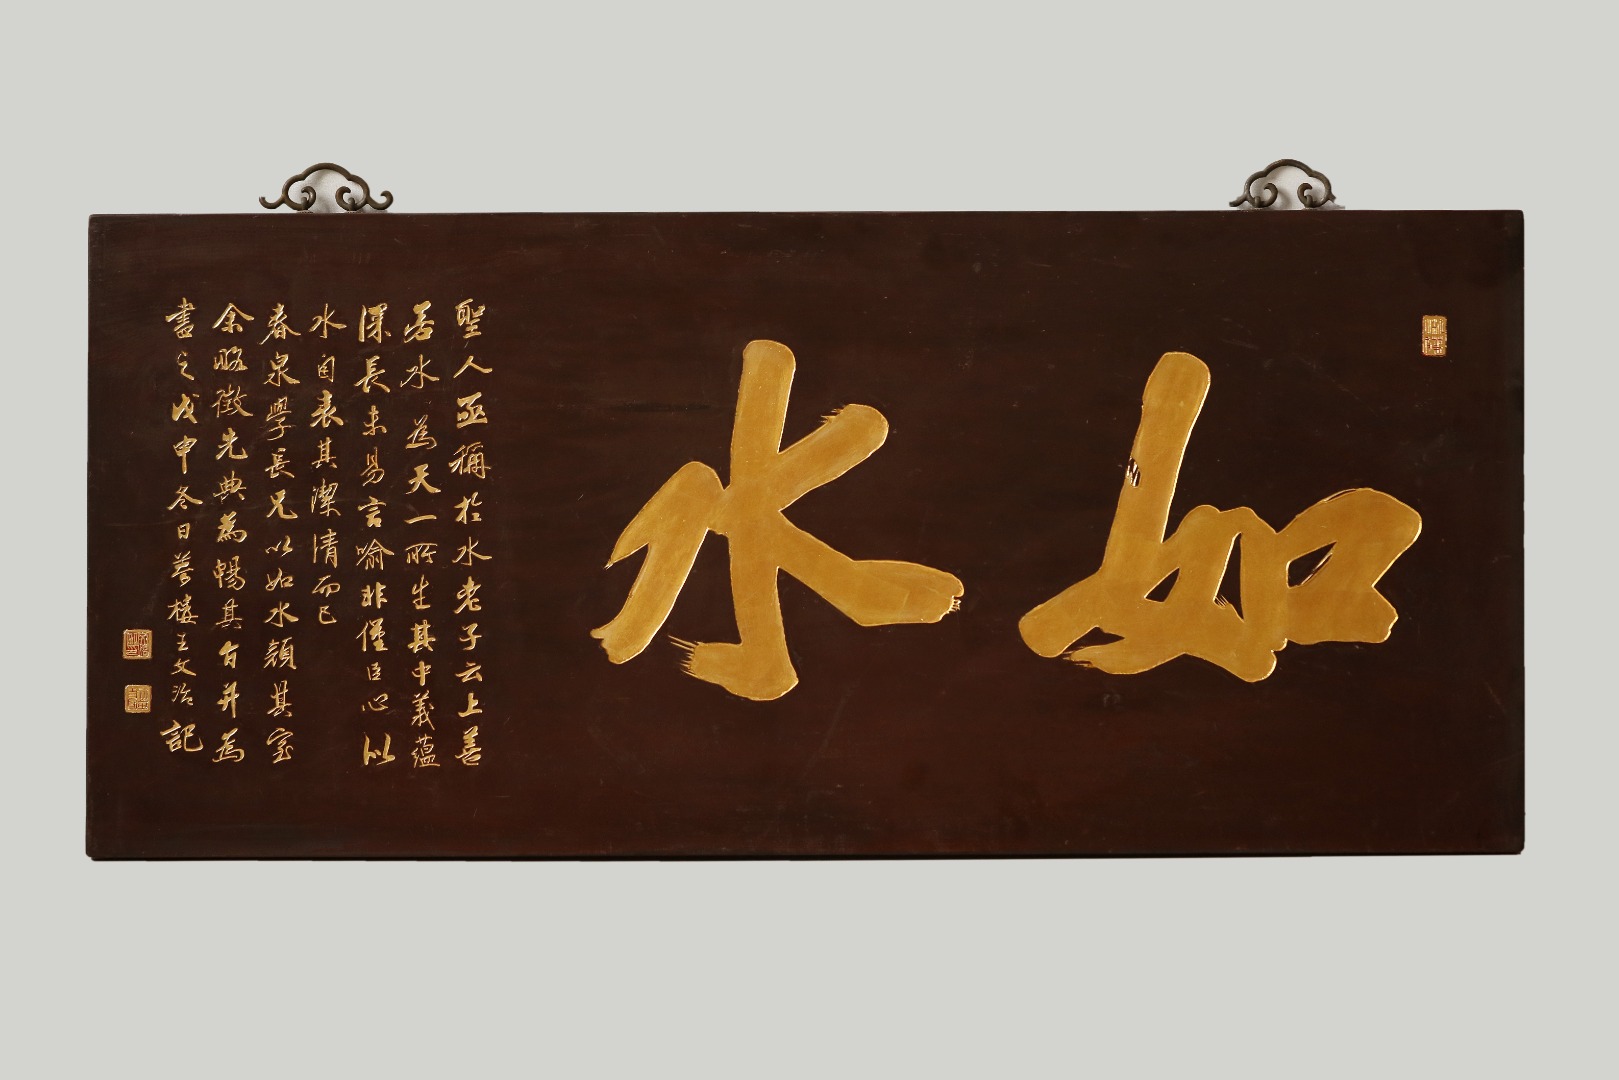 如水
聖人亟稱於水老子云上善
若水為天一所生其中義蘊
深長未易言喻非僅臣心似
水自表其潔清而已
春泉學長兄以如水顏其室
余略徵先典為暢其旨并為
書之戊申冬日夢樓王文治記